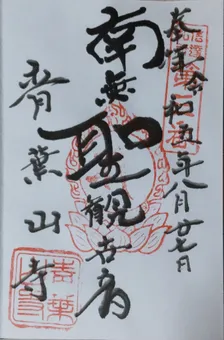 奉拝 令和五年八月廿七日
南無聖観世音
青葉山寺
青葉